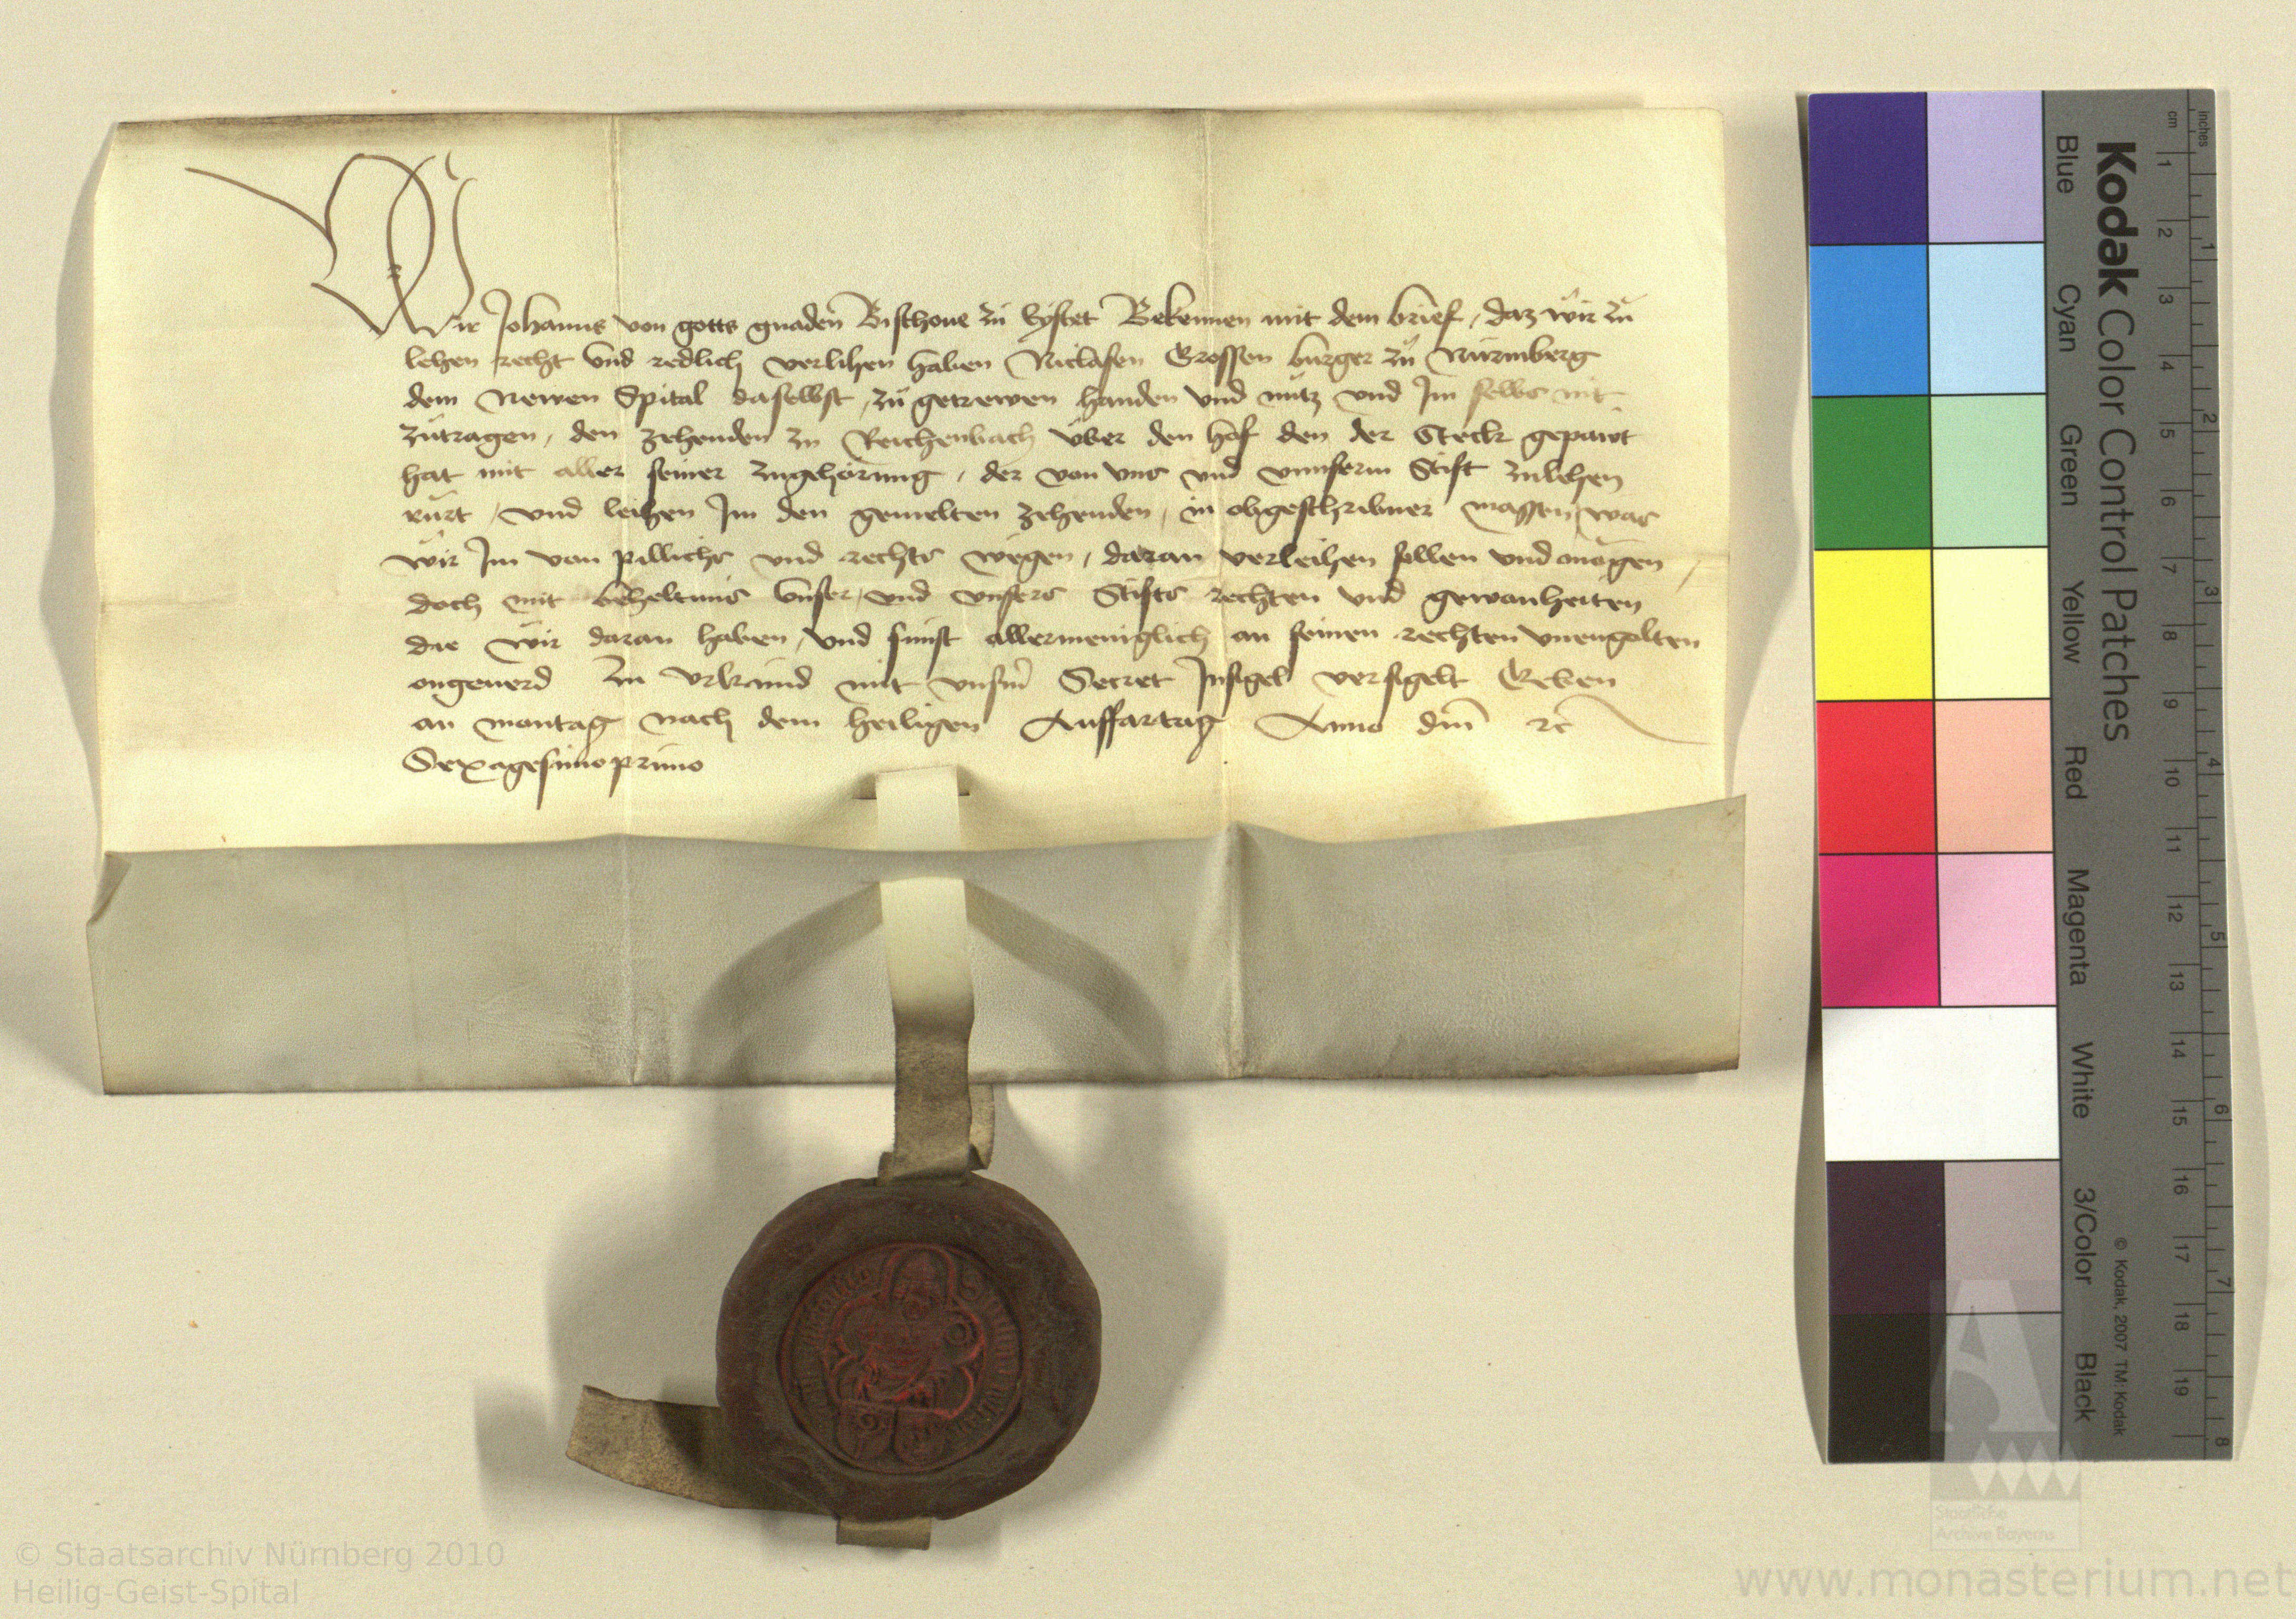 Wir Johanns von gotts gnaden Bischoue zu Eystet Bekennen mit dem brief, daz wir zu
lehen recht vnd redlich verlihen haben Niclasen Grossen burger zu Nüremberg
dem Newen Spital daselbst, zu getrewen handen vnd nutz vnd Im selbs nit
zutragen, den zehenden zu Reichenbach über den hof den der Steck gepawt
hat mit aller seiner zugehörung, der von vns vnd vnnserm Stift zulehen
rürt, vnd leihen Im den gemelten zehenden, in obgeschribner massen, was
wir Im von pillichs vnd rechts wegen, daran verleihen sollen vnd mögen,
doch mit beheltnus vnser, vnd vnsers Stifts rechten vnd gewonheiten
die wir daran haben, vnd sunst allermeniglich an seinen rechten vnengolten
ongeuerd Zu Vrkund mit vnserm Secret Insigel versigelt Geben
an montag nach dem heiligen Auffartag Anno dm̄ rc
Sexagesimoprimo
Kodak Color Control Patches
Blue Cyan Green Yellow Red Magenta White 3/Color Black
© Kodak, 2007 TM: Kodak
inches 1 2 3 4 5 6 7 8
cm 1 2 3 4 5 6 7 8 9 10 11 12 13 14 15 16 17 18 19
Staatliche
Archive Bayerns
© Staatsarchiv Nürnberg 2010
Heilig-Geist-Spital
www.monasterium.net